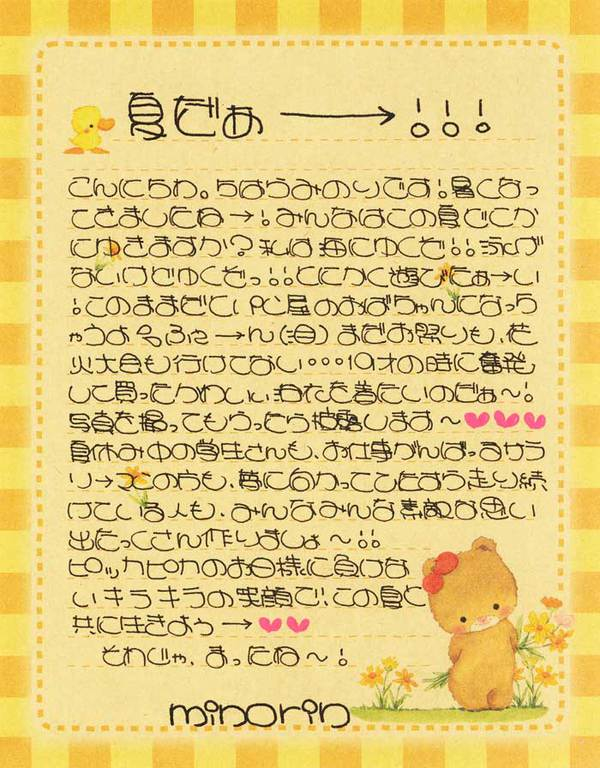 夏だぁ――→!!!
こんにちわ。ちはらみのりです!暑くなっ
てきましたね→!みんなはこの夏どこか
にゆきますか?私は海にゆくぞ!!泳げ
ないけどゆくぞっ!!とにかく遊びたぁ→い
!このままだとPC屋のおばちゃんになっち
ゃうよぅふぇ→ん(泪)まだお祭りも、花
火大会も行けてない・・・19才の時に奮発
して買ったかわいいゆかたを着たいのだぁ～!
写真を撮ってもらったら披露します～
夏休み中の学生さんも、お仕事がんばってるサラ
リ→マンの方も、夢に向かってひたすら走り続
けている人も、みんなみんな素敵な思い
出たっくさん作りましょ～!!
ピッカピカのお日様に負けな
いキラキラの笑顔で、この夏と
共に生きよう→
それじゃ、まったね～!
minorin